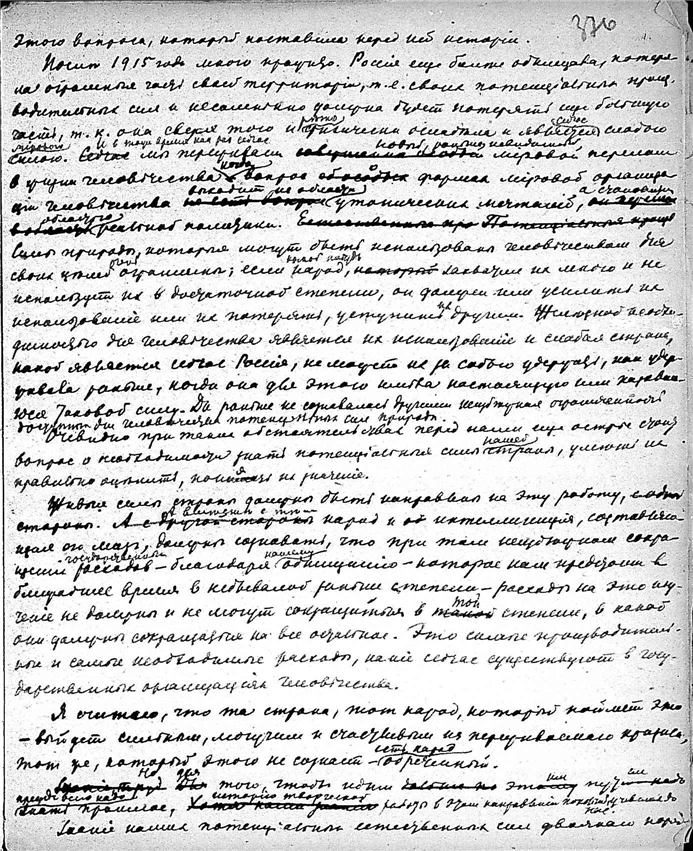 376
этого вопроса, который поставила перед ней история.
После 1915 года много прошло. Россия еще более обнищала, потеря-
ла огромные части своей территории, т.е. своих потенциальных произ-
водительных сил и несомненно должна будет потерять еще большую
часть, т.к. она сверх того и физически ослабела и является сейчас слабою
мировой силою. И в тоже время как раз сейчас мы переживаем новый, раньше невиданный мировой перелом
в жизни человечества когда вопрос о формах мировой организа-
ции человечества выходит из области утопических мечтаний, а становится
областью реальной политики.
Силы природы, которые могут быть использованы человечеством для
своих целей ограничены; если какой нибудь народ, захватил их много и не
использует их в достаточной степени, он должен или усилить их
использование или их потерять, уступить их другим. Жизненной необхо-
димостью для человечества является их использование и слабая страна,
какой является сейчас Россия, не может их за собою удержать, как удер-
живала раньше, когда она для этого имела настоящую или казавшу-
юся таковой силу. Да раньше не сознавалась другими неизбежная ограниченность
доступных для человечества потенциальных сил природы.
Очевидно при таких обстоятельствах перед нами еще острее стоит
вопрос о необходимости знать потенциальные силы нашей страны, уметь их
правильно оценить, понять их значение.
Живые силы страны должны быть направлены на эту работу,
А вместе с тем народ и об интеллигенция, составляю-
щая его мозг, должны сознавать, что при том неизбежном сокра-
щении государственных расходов – благодаря нашему обнищанию – которое нам предстоит в
ближайшее время в небывалой раньше степени – расходы на это изу-
чение не должны и не могут сокращаться в той степени, в какой
они должны сокращаться на все остальное. Это самые производитель-
ные и самые необходимые расходы, какие сейчас существуют в госу-
дарственных организациях человечества.
Я считаю, что та страна, тот народ, который поймет это
– выйдет сильным, могучим и счастливым из переживаемого кризиса,
тот же, который этого не сознает – есть народ обреченный.
Но для того, чтобы идти этим путем надо
прежде всего знать прошлое, историю творческой работы в этом направлении
Знание наших потенциальных естественных сил